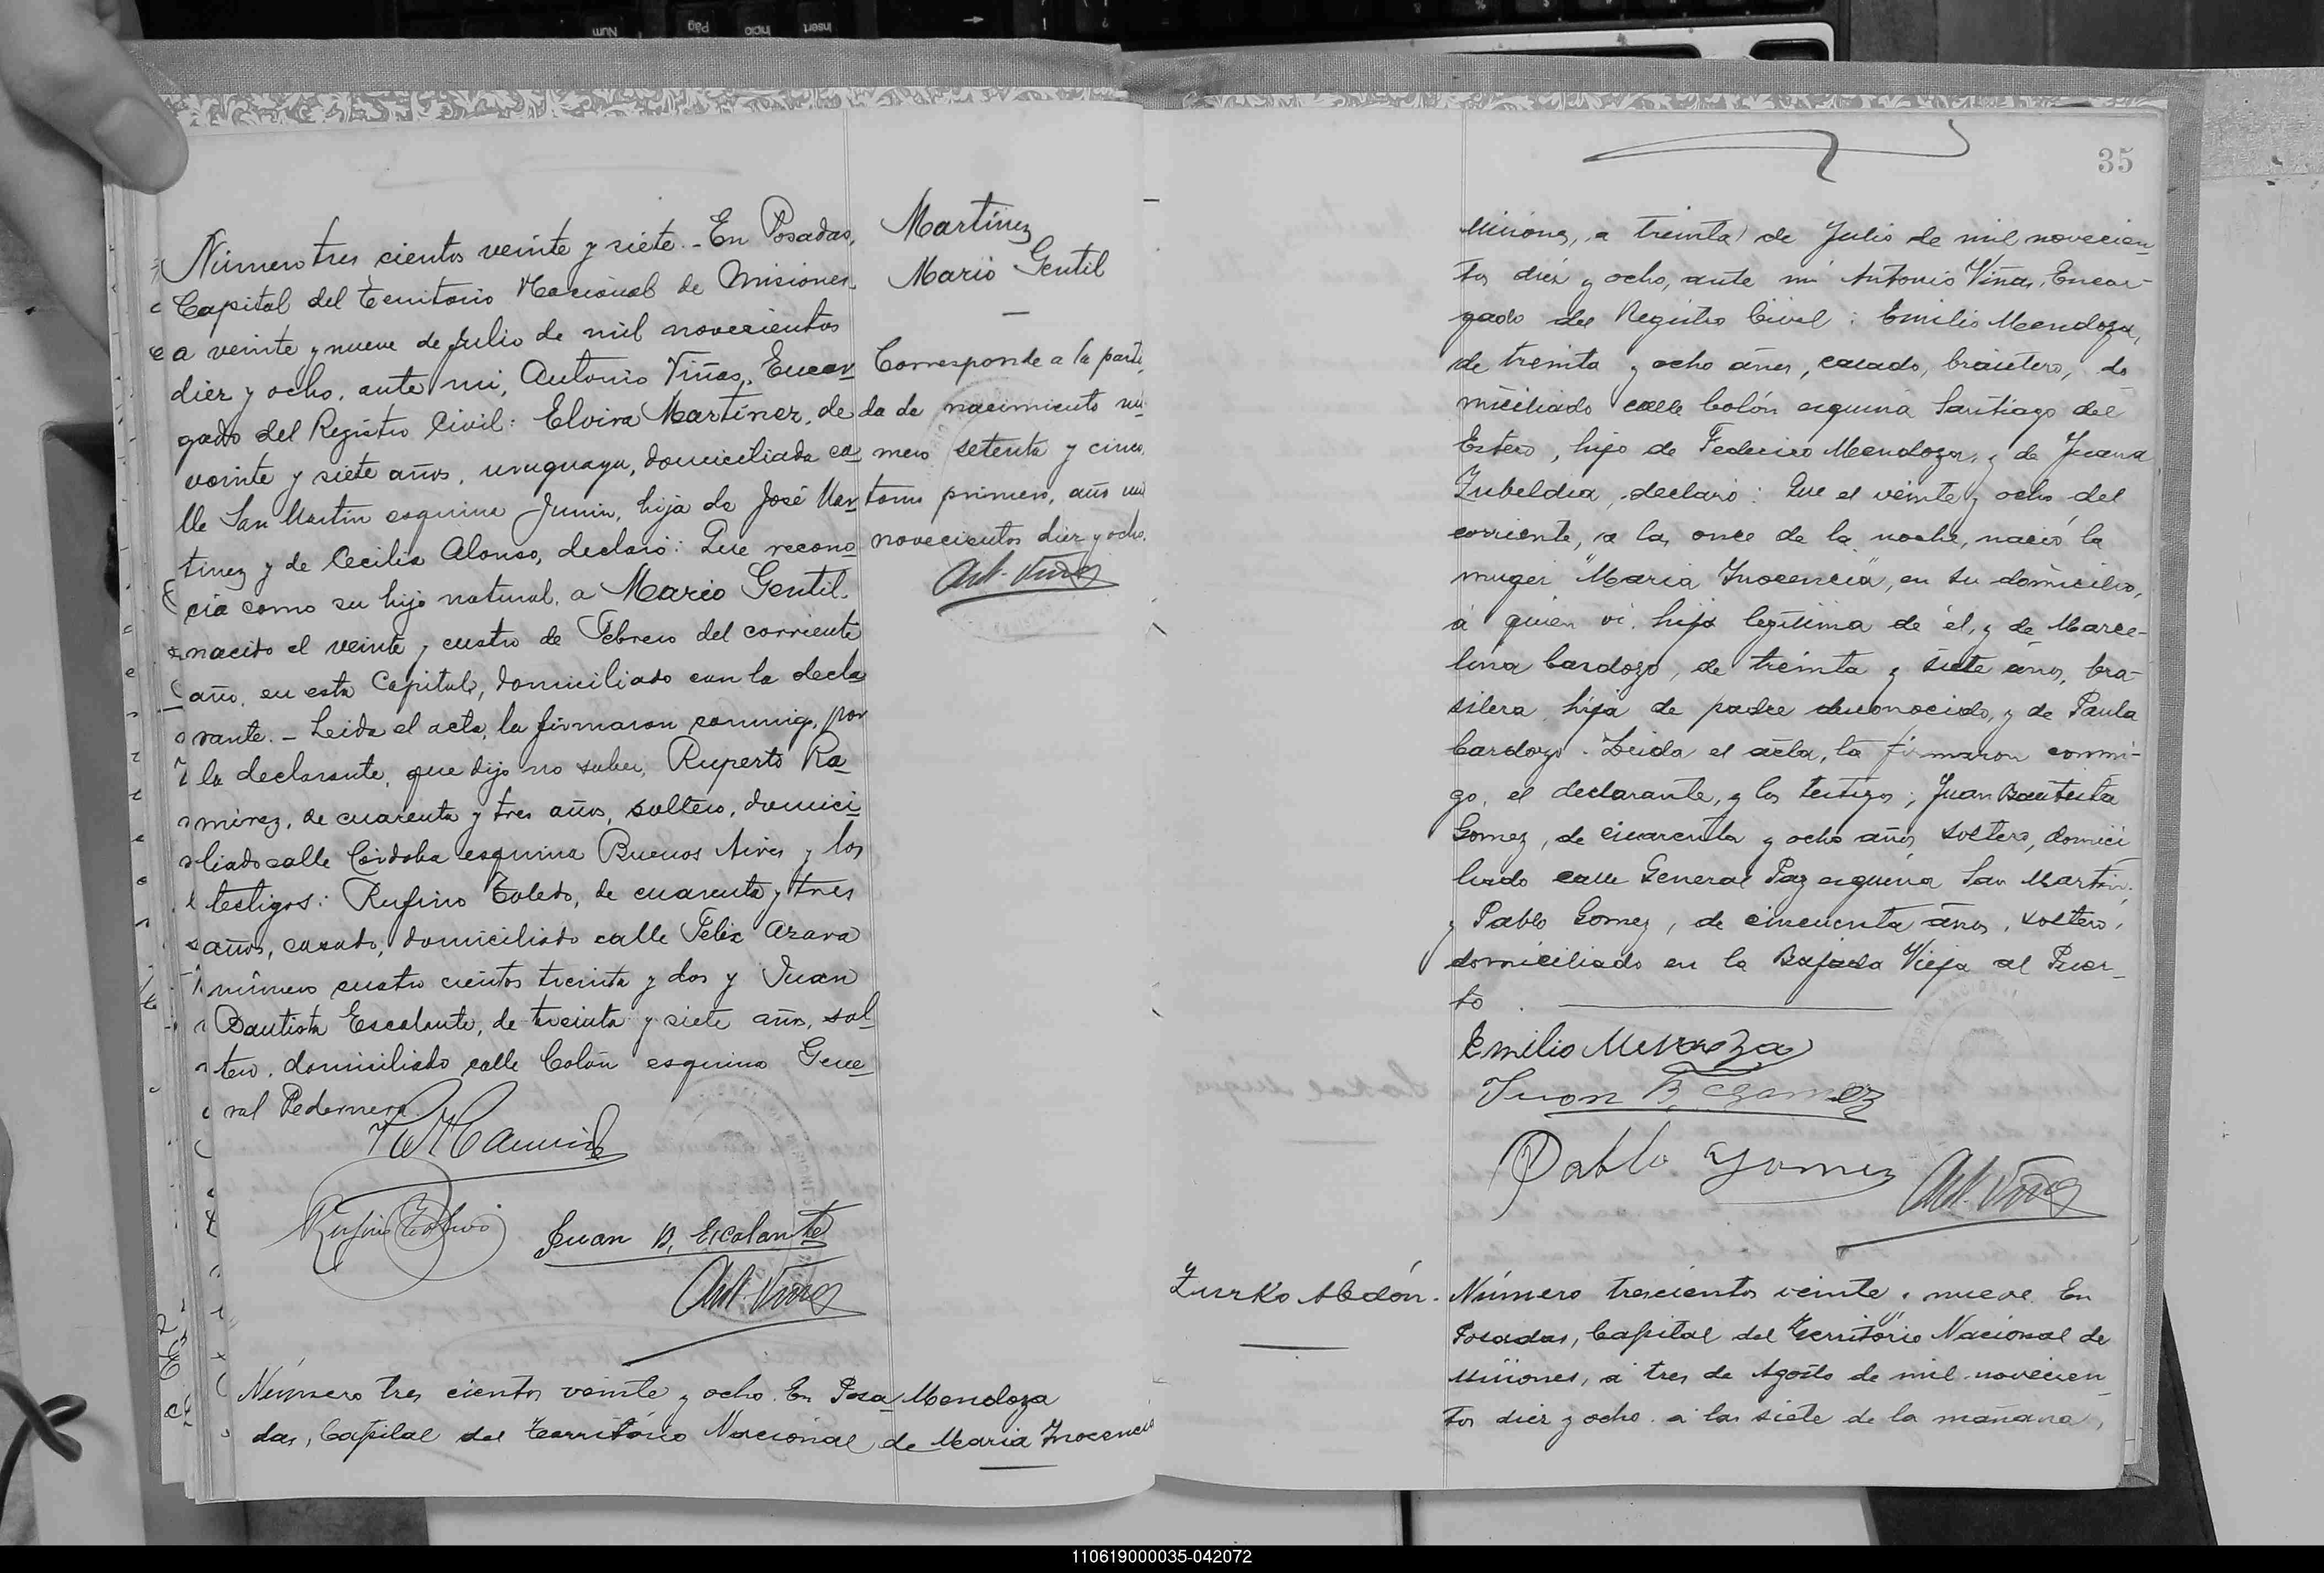 Número tres cientos veinte y siete.- En Posadas,
Capital del Territorio Nacional de Misiones
a veinte y nueve de Julio de mil novecientos
diez y ocho, ante mi, Antonio Viñas, Encar-
gado del Registro Civil: Elvira Martínez, de
veinte y siete años, uruguaya, domiciliada ca-
lle San Martin esquina Junin, hija de José Mar-
tinez y de Cecilia Alonso, declaró: Que recono-
cia como su hijo natural, a Mario Gentil
nacido el veinte y cuatro de Febrero del corriente
año, en esta Capital, domiciliado con la decla-
rante.- Leida el acta, la firmaron conmigo, por
la declarante, que dijo no saber, Ruperto Ra-
mirez, de cuarenta y tres años, soltero, domici-
liado calle Córdoba esquina Buenos Aires y los
testigos: Rufino Toledo, de cuarenta y tres
años, casado, domiciliado calle Felix Azara
número cuatro cientos treinta y dos y Juan
Bautista Escalante, de treinta y siete años, sol-
tero, domiciliado calle Colón esquina Gene-
ral Pedernera.
Rufino Toledo
Juan B. Escalante
Ant. Viñas
Martínez
Mario Gentil
Corresponde a la parti-
da de nacimiento nú-
mero setenta y cinco,
tomo primero, año mil
novecientos diez y ocho.
Ant. Viñas
Número tres cientos veinte y ocho. En Posa-
das, Capital del Territorio Nacional de
Mendoza
Maria Inocencia
35
Misiones, a treinta de Julio de mil novecien-
tos diez y ocho, ante mi Antonio Viñas, Encar-
gado del Registro Civil: Emilio Mendoza,
de treinta y ocho años, casado, do-
miciliado calle Colón esquina Santiago del
Estero, hijo de Federico Mendoza, y de Juana
Zubeldia, declaró: Que el veinte y ocho del
corriente, a las once de la noche, nació la
muger "Maria Inocencia", en su domicilio,
á quien vi, hija legítima de él, y de Marce-
lina Cardozo, de treinta y siete años, bra-
silera, hija de padre desconocido, y de Paula
Cardozo. Leida el acta, la firmaron conmi-
go, el declarante, y los testigos; Juan Bautista
Gomez, de cuarenta y ocho años, soltero, domici-
liado calle General Paz esquina San Martin,
y Pablo Gomez, de cincuenta años, soltero,
domiciliado en la Bajada Vieja al Puer-
to
Emilio Mendoza
Juan B. Gomez
Pablo Gomez
Ant. Viñas
Zurko Abdón.
Número trescientos veinte y nueve. En
Posadas, Capital del Territorio Nacional de
Misiones, a tres de Agosto de mil novecien-
tos diez y ocho a las siete de la mañana,
110619000035-042072